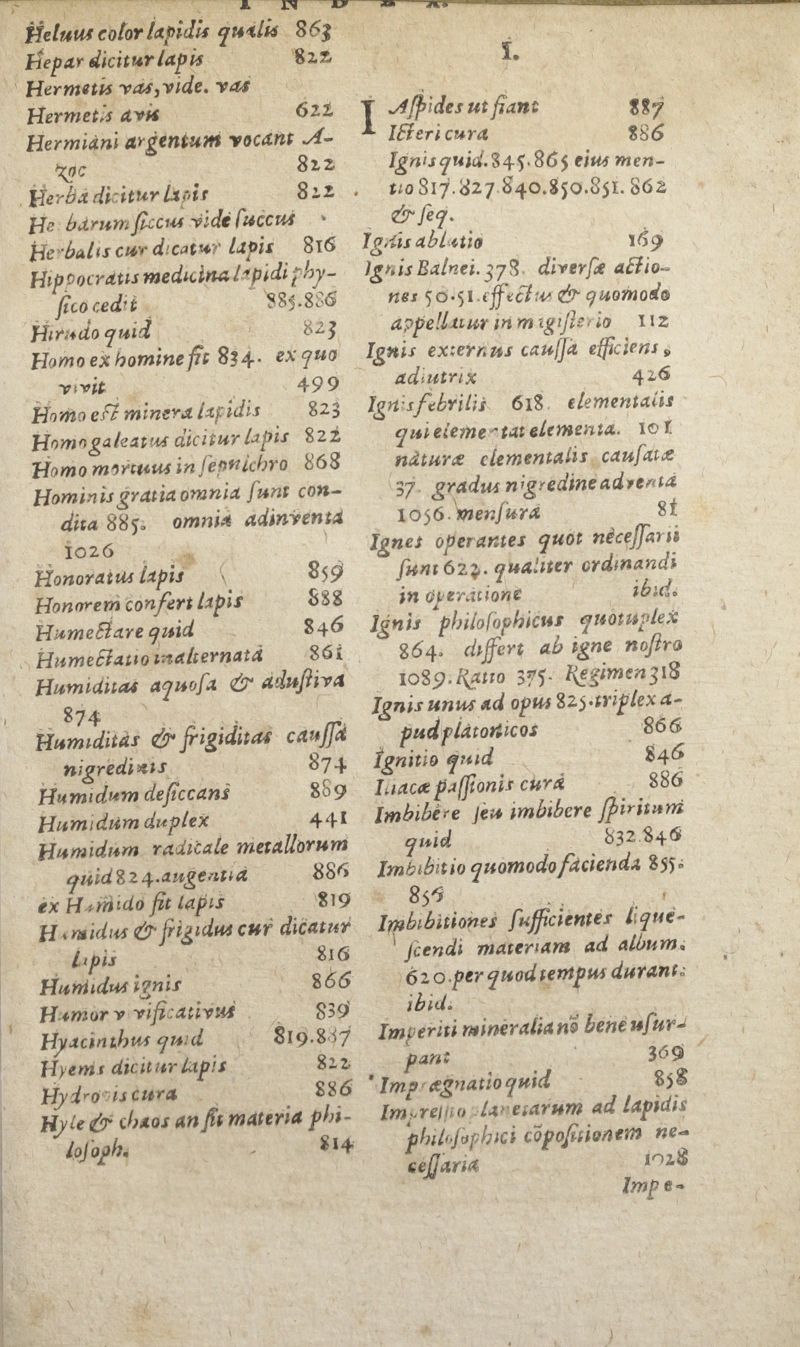 INDEX.
Heluus color lapidis qualis 863
Hepar dicitur lapis 822
Hermetis vas, vide. vas
Hermetis avis 622
Hermiani argentum vocant A-
zoc 822
Herba dicitur lapis 822
Herbarum siccus vide succus
Herbalis cur dicatur lapis 816
Hippocratis medicina lapidi phy-
sico cedit 885.886
Hirudo quid 823
Homo ex homine fit 834. ex quo
vivit 499
Homo est minera lapidis 823
Homo galeatus dicitur lapis 822
Homo mortuus in sepulchro 868
Hominis gratia omnia sunt con-
dita 885. omnia adinventa
1026
Honoratus lapis 859
Honorem confert lapis 888
Humectare quid 846
Humectatio inalternata 861
Humiditas aquosa & adustiva
874
Humiditas & frigiditas caussa
nigredinis 874
Humidum desiccans 889
Humidum duplex 441
Humidum radicale metallorum
quid 824. augentia 886
ex Humido fit lapis 819
Humidus & frigidus cur dicatur
lapis 816
Humidus ignis 866
Humor vivificativus 839
Hyacinthus quid 819.887
Hyems dicitur lapis 822
Hydropis cura 886
Hyle & chaos an fit materia phi-
losoph. 814
I.
IAspides ut fiant 887
Icteri cura 886
Ignis quid. 845. 865 eius men-
tio 817. 827 840. 850. 851. 862
& seq.
Ignis ablutio 169
Ignis Balnei. 378. diversæ actio-
nes 50.51. effectus & quomodo
appellatur in magisterio 112
Ignis externus caussa efficiens,
adiutrix 426
Ignis febrilis 618. elementalis
qui elementat elementa. 101
naturæ elementalis causatæ
37. gradus nigredine adventa
1056. mensura 81
Ignes operantes quot necessarii
sunt 622. qualiter ordinandi
in operatione ibid.
Ignis philosophicus quotuplex
864. differt ab igne nostro
1089. Ratio 375. Regimen 318
Ignis unus ad opus 825. triplex a-
pud platonicos 866
Ignitio quid 846
Iliacæ passionis cura 886
Imbibere seu imbibere spiritum
quid 832.846
Imbibitio quomodo facienda 855.
856
Imbibitiones sufficientes lique-
scendi materiam ad album.
620. per quod tempus durant.
ibid.
Imperiti mineralia nõ bene usur-
pant 369
Imprægnatio quid 858
Impressio planetarum ad lapidis
philosophici cõpositionem ne-
cessaria 1028
Impe-